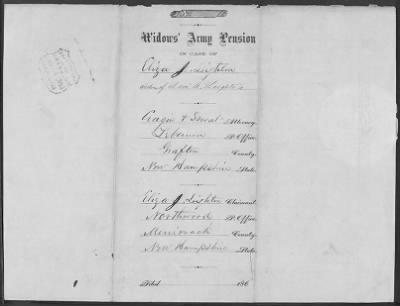 Widows' Army Pension
IN CASE OF
Eliza J Leighton
widow of Leighton
& Attorney
Lebanon P. Office
Grafton County
New Hampshire State
Eliza J Leighton Claimant
Northwood P. Office
Merrimack County
New Hampshire State
Filed 186